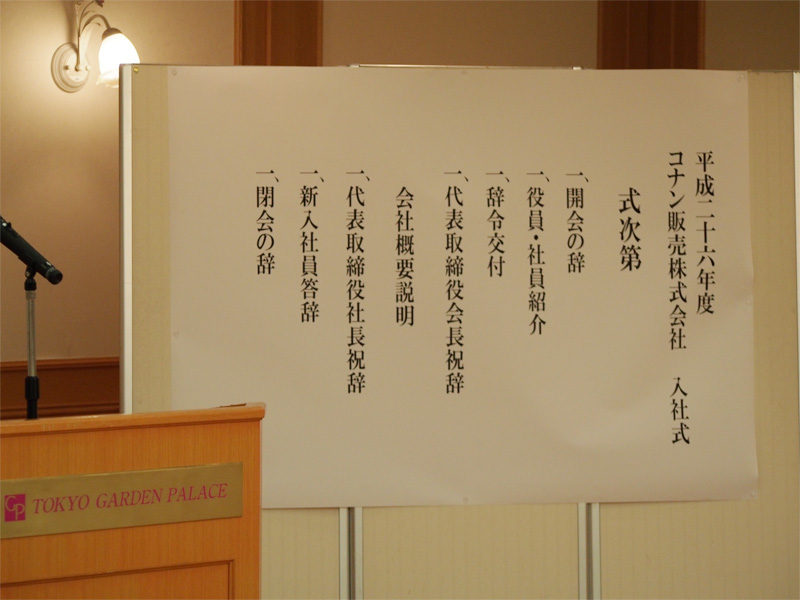 平成二十六年度
コナン販売株式会社　入社式
式次第
一、開会の辞
一、役員・社員紹介
一、辞令交付
一、代表取締役会長祝辞
会社概要説明
一、代表取締役社長祝辞
一、新入社員答辞
一、閉会の辞
GP TOKYO GARDEN PALACE